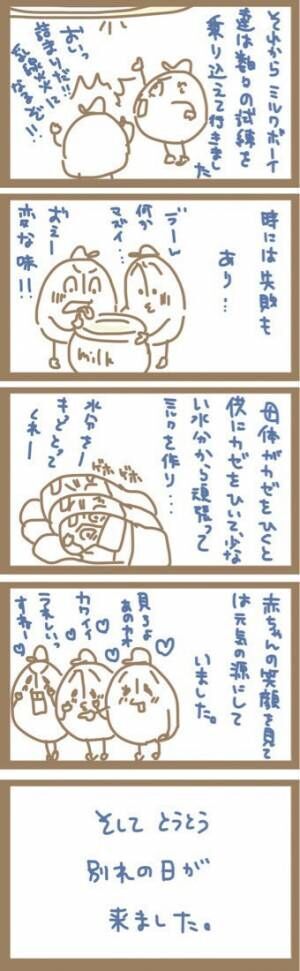 それから ミルクボーイ
達は数々の試練を
乗り込えて行きました
おいっ
詰まりだ!!
乳腺炎に
なるぞ!!
時には失敗も
あり…
う"ーん
何か
マズイ…
おえー
変な味!!
milk
母体がカゼをひくと
供にカゼをひいて、少な
い水分から頑張って
ミルクを作り…
ゲホ ゲホ
水分を
もどって
くれー
赤ちゃんの笑顔を見て
は元気の源にして
いました。
見ろよ
あのエガオ
カワイイ
うれしいっ
すねー
そして とうとう
別れの日が
来ました。